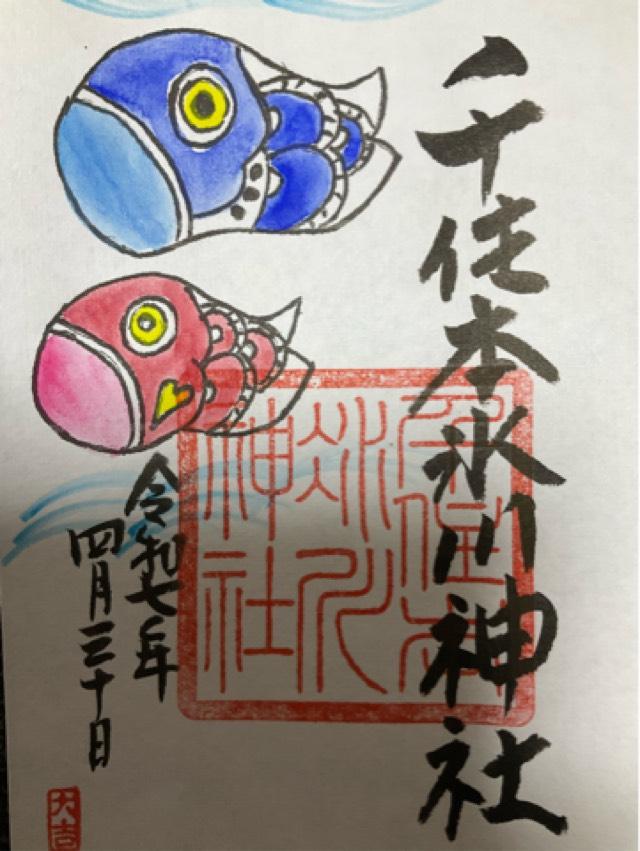 千住本氷川神社
千住本
氷川
神社
令和七年
四月三十日